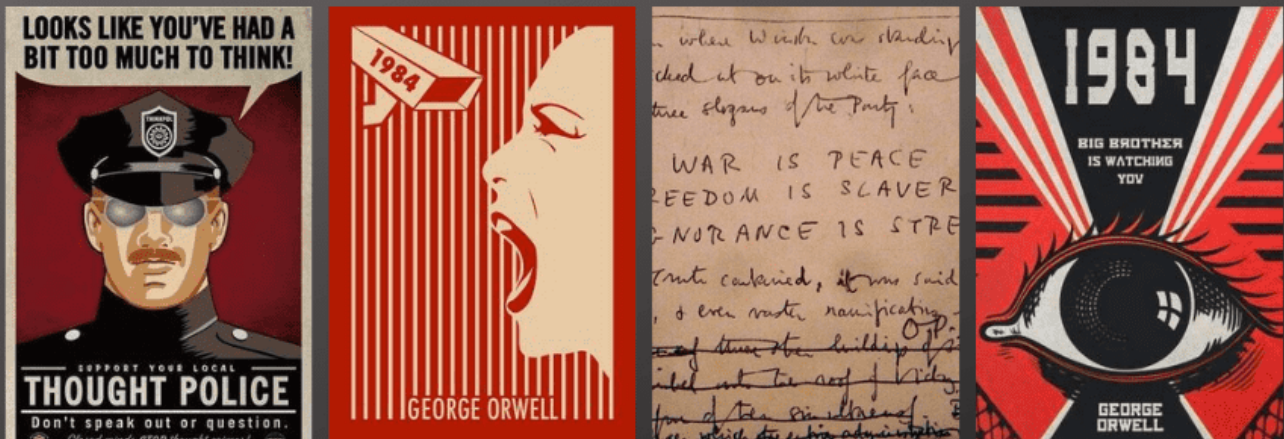 LOOKS LIKE YOU'VE HAD A
BIT TOO MUCH TO THINK!
THINKPOL
SUPPORT YOUR LOCAL
THOUGHT POLICE
Don't speak out or question.
1984
GEORGE ORWELL
where Winston was standing
on its white face
three slogans of the Party:
WAR IS PEACE
EEDOM IS SLAVER
NORANCE IS STRE
Truth contained, it was said
, & even vaster ramifications
1984
BIG BROTHER
IS WATCHING
YOU
GEORGE
ORWELL